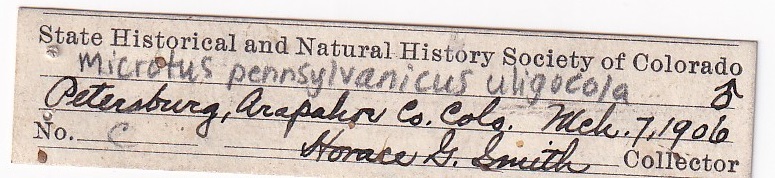 State Historical and Natural History Society of Colorado
Microtus pennsylvanicus uligocola ♂
Petersburg, Arapahoe Co. Colo. Mch. 7, 1906
No. C Horace G. Smith Collector